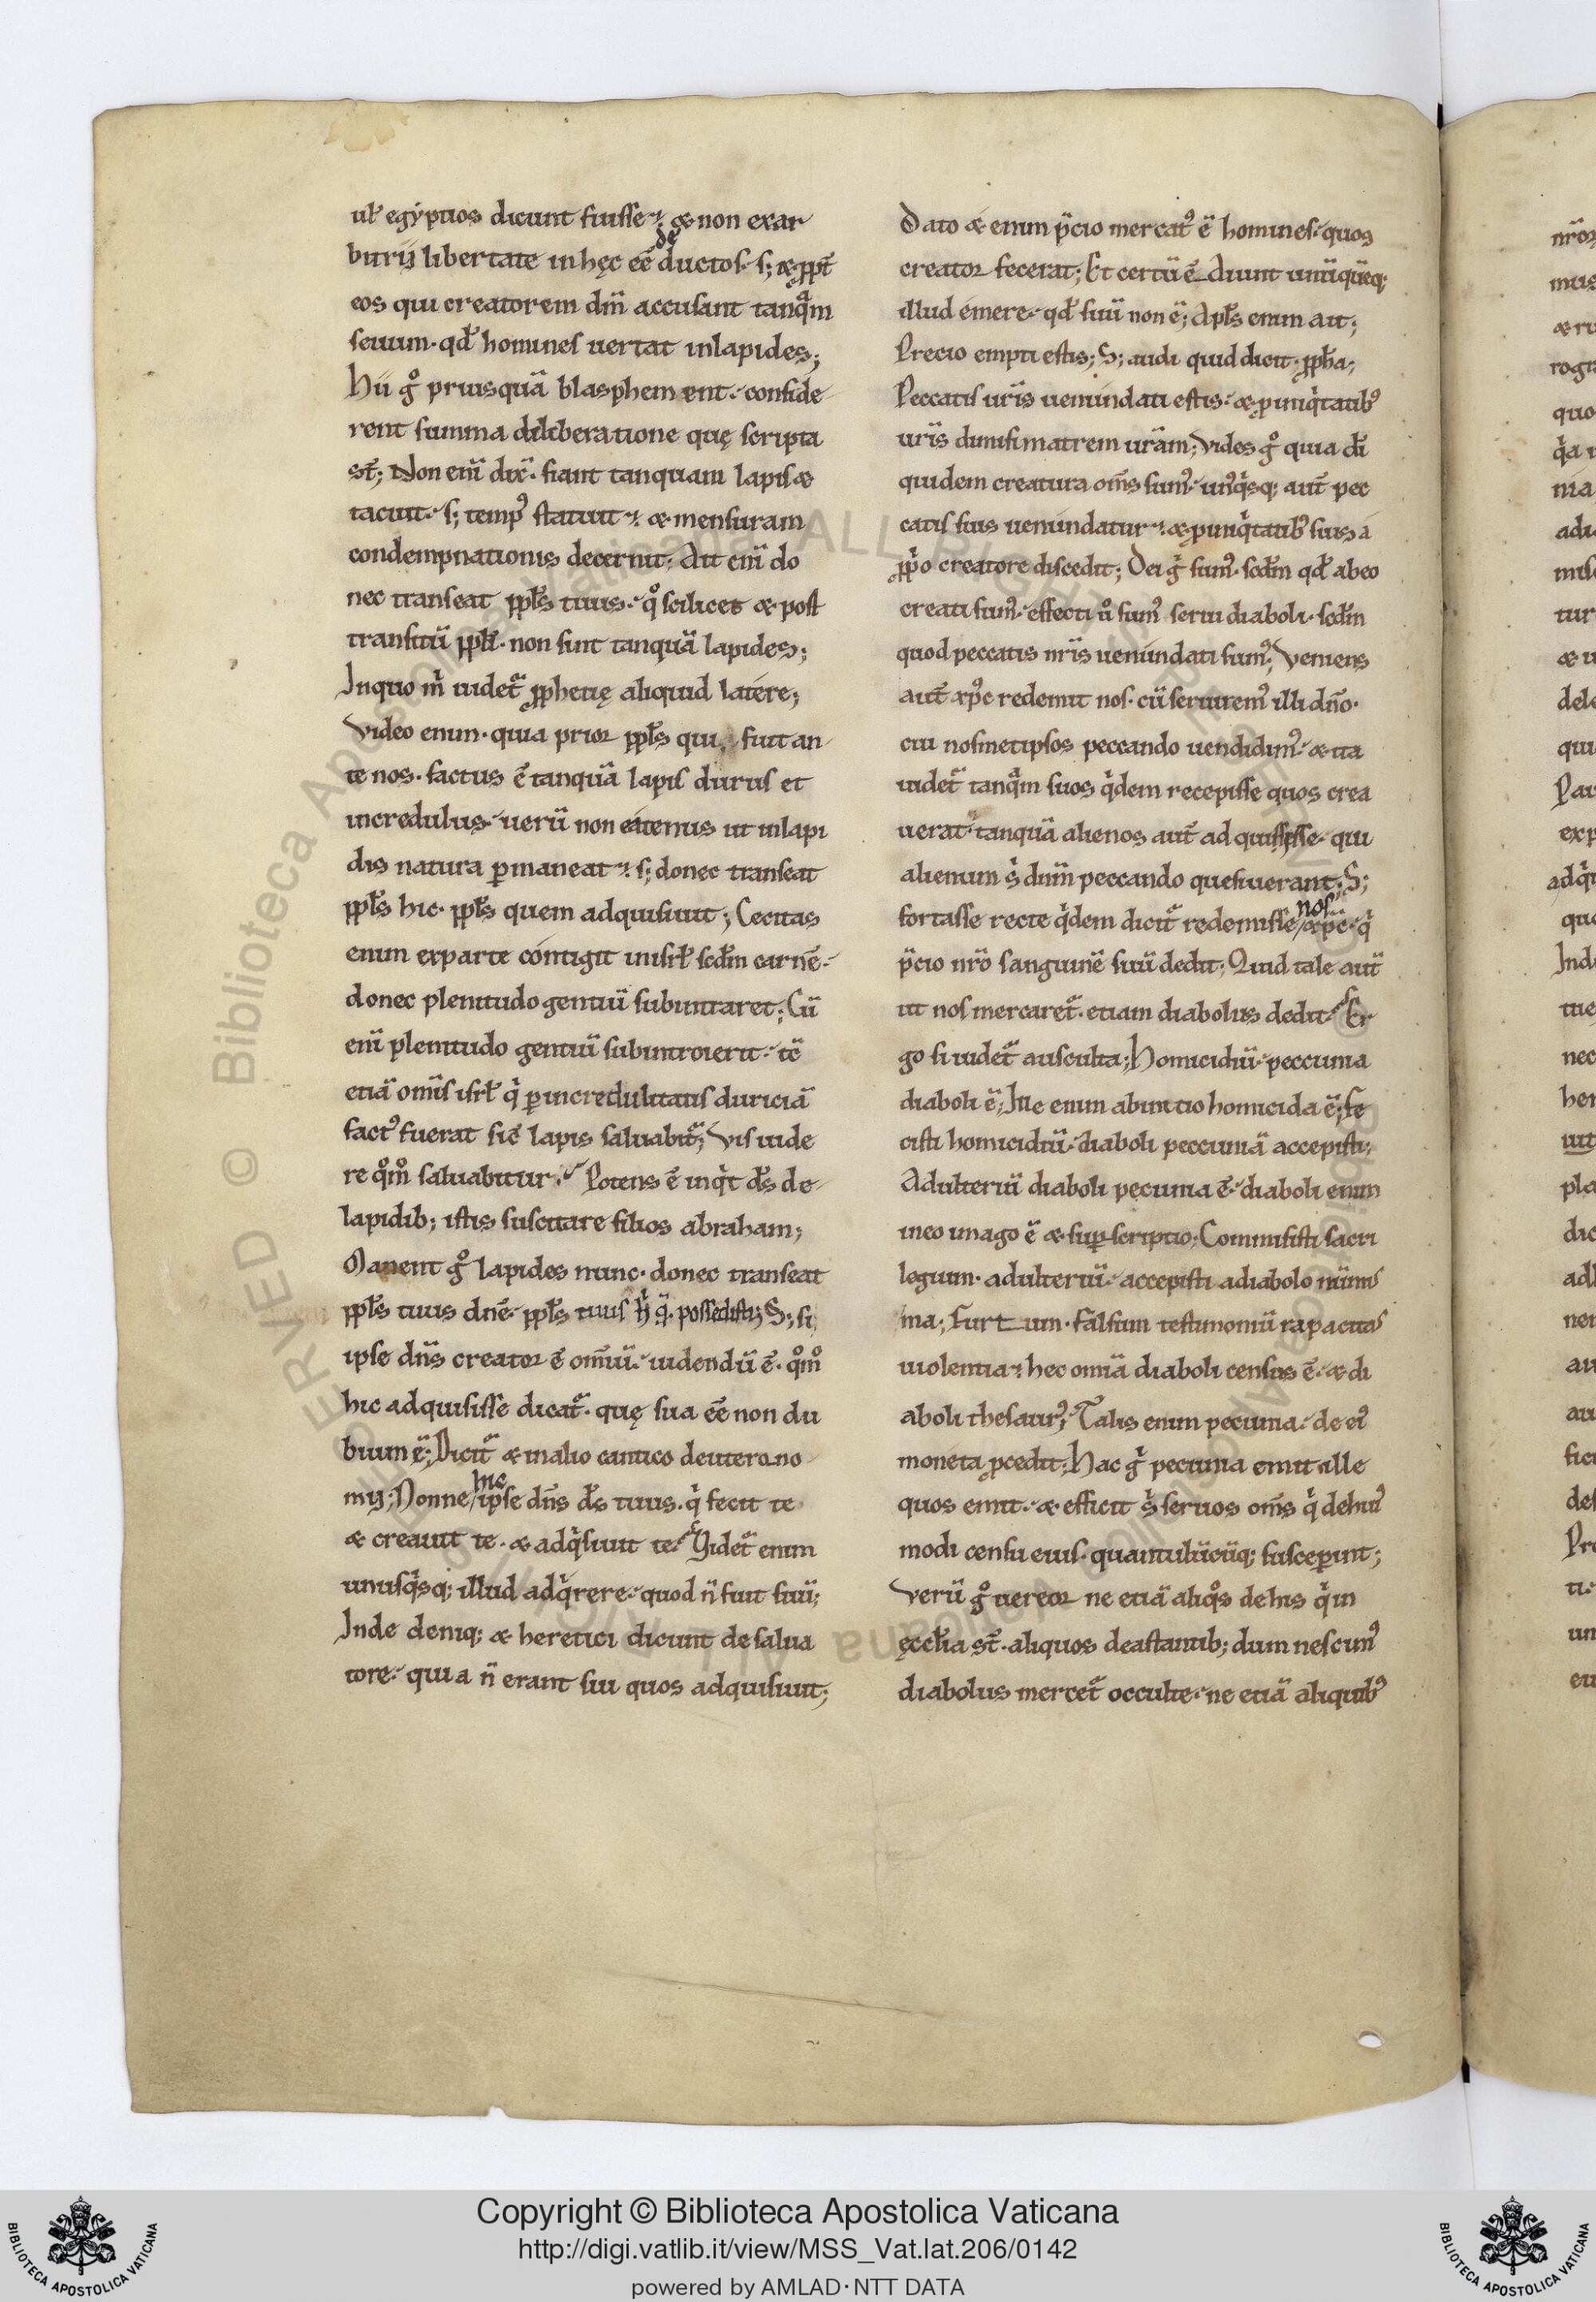 ul̓ egyptios dicunt fuisse. & non exar
biti libertate in hęc eē deductos. s; & ꝓpt̄
eos qui creatorem dm̄ accusant tanqᵃm
seuum. qđ homines uertat in lapides;
Hii gͦ priusquā blasphement. conside
rent summa deliberatione quę scripta
st̄; Non eni̅ dix̄. fiant tanquam lapis &
tacuit. s; temp⁹ statuit. & mensuram
condempnationis decernit; Ait eni̅ do
nec transeat ppl̓s tuus. qͦ scilicet & post
transitū ppl̓i. non sint tanquā lapides;
In quo m̓ uidet᷑ ꝓphetię aliquid latére;
Video enim. quia prior ppl̓s qui fuit an
te nos. factus ē tanquā lapis durus et
incredulus. uerū non eátenus ut in lapi
dis natura ꝑmaneat. s; donec transeat
ppl̓s hic. ppl̓s quem adquisiuit; Cecitas
enim ex parte cóntigit in isrl̓ scđm carnē.
donec plenitudo gentiū subintraret; Cū
eni̅ plenitudo gentiū subintroierit. tc̄
etiā omīs isrl̓ qⁱ ꝑ incredulitatis duriciā
fact⁹ fuerat sic̄ lapis saluabit᷑; Vis uide
re qͦmͦ saluabitur. Potens ē inqⁱt ds̄ de
lapidib; istis suscitare filios abraham;
Manent gͦ lapides nunc. donec transeat
ppl̓s tuus dnē. ppl̓s tuus hⁱ q̄. possedisti; S; si
ipse dns̄ creator ē om̄iū. uidendū ē. qͦmͦ
hic adquisisse dicat᷑. quę sua eē non du
bium ē; Dicit᷑ & in alio cantico deuterono
mij; Nonne / hic ipse dns̄ ds̄ tuus. qⁱ fecit te
& creauit te. & adqⁱsiuit te. Videt᷑ enim
unusqⁱsq; illud adqⁱrere. quod n̄ fuit suū;
Inde deniq; & heretici dicunt de salua
tore. quia n̄ erant sui quos adquisiuit;
Dato & enim p̄cio mercat⁹ ē homines. quos
creator fecerat; Et certū ē Aiunt unūquēq;
illud émere. qđ suū non ē; Apl̓s enim ait;
Precio empti estis; S; audi quid dicit. ꝓpha;
Peccatis ur̄is uenúndati estis. & ꝓ iniqⁱtatib⁹
ur̄is dimisi matrem ur̄am; Vides gͦ quia di̅
quidem creatura om̄s sum⁹. un⁹qⁱsq; aut̄ pec
catis suis uenúndatur. & ꝓ iniqⁱtatib⁹ suis á
ꝓpⁱo creatore discedit; Dei gⁱ sum⁹. scđm qđ ab eo
creati sum⁹. effecti uͦ sum⁹ serui diaboli. scđm
quod peccatis nr̄is uenúndati sum⁹; Veniens
aut̄ xp̄c redemit nos. cū seruirem⁹ illi dn̄o.
cui nosmetipsos peccando uendidim⁹. & ita
uidet᷑ tanqᵃm suos qⁱdem recepisse quos crea
uerat. tanquā alienos aut̄ adquisisse. qui
alienum sⁱ dnm̄ peccando quesiuerant; S;
fortasse recte qⁱdem dicit᷑ redemisse / nos xp̄c. qⁱ
p̄cio nr̄o sanguinē suū dedit; Quid tale autē
ut nos mercaret᷑. etiam diabolus dedit. Er
go si uidet᷑ ausculta; Homicidiū. peccunia
diaboli ē; Ille enim ab initio homicida ē; fe
cisti homicidiū. diaboli peccuniā accepisti;
Adulteriū diaboli pecunia ē. diaboli enim
in eo imago ē & suꝑscriptio; Commisisti sacri
legium. adulteriū. accepisti a diabolo númis
ma; Furtum. falsum testimoniū rapacitas
uiolentia. hec omīa diaboli census ē. & di
aboli thesaur⁹; Talis enim pecunia. de ei⁹
monéta ꝓcedit; Hac gⁱ pecunia emit ille
quos emit. & efficit sⁱ seruos om̄s qⁱ de hui⁹
modi censu eius. quantulūcūq; susceꝑint;
Verū gͦ uereor ne etiā aliqͦs de his qⁱ in
ęccl̓ia st̄. aliquos de astantib; dum nescim⁹
diabolus mercet᷑ occulte. ne etiā aliquib⁹
Copyright © Biblioteca Apostolica Vaticana
http://digi.vatlib.it/view/MSS_Vat.lat.206/0142
powered by AMLAD·NTT DATA
BIBLIOTECA APOSTOLICA VATICANA
BIBLIOTECA APOSTOLICA VATICANA